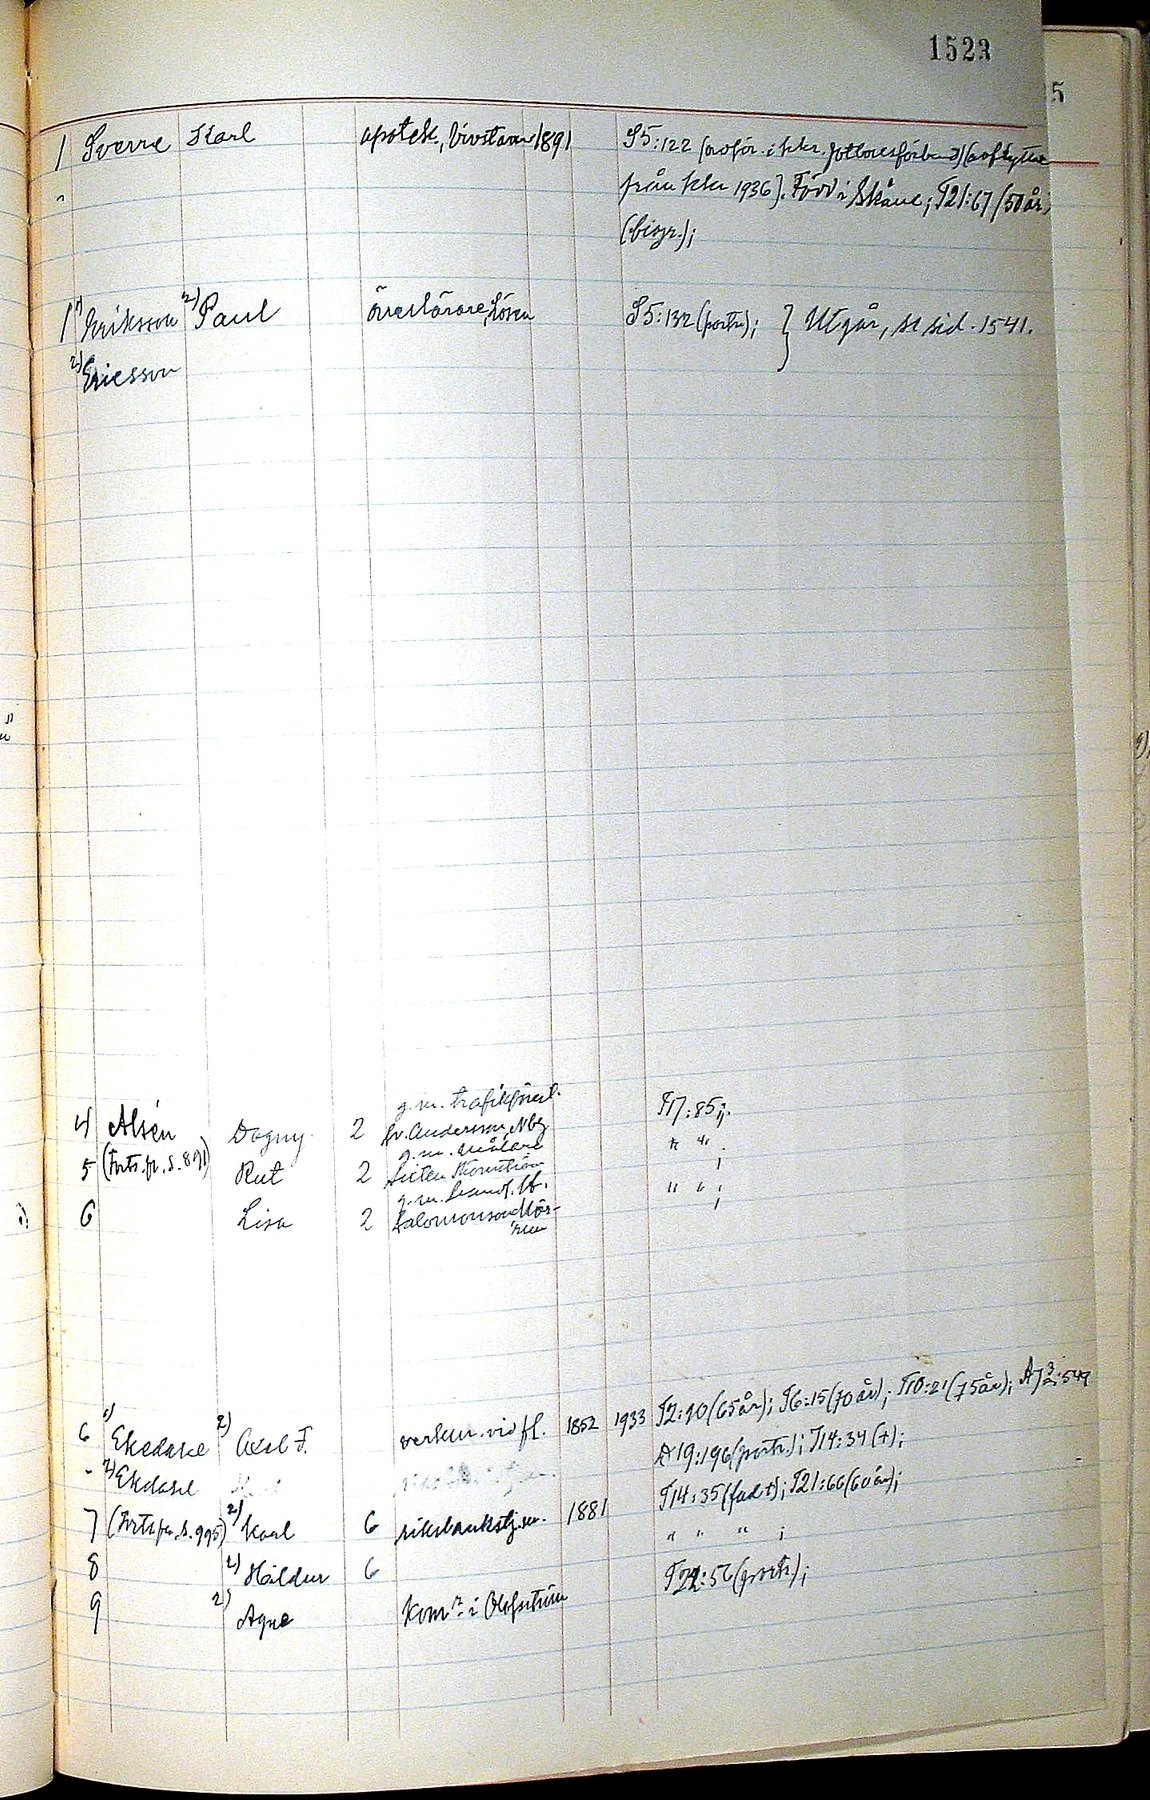 1523
5
1 Sverre Karl apotek., Vivstavarv 1891 S5:122 (avflyttat
från kkr 1936). Född i Skåne; T21:67 (50 år,
(biogr.);
1 1) Eriksson 2) Paul överlärare, Lösen S5:132 (portr.); } Utgår, se sid. 1541.
2) Ericsson
g.m. trafikförest.
4 Alsén Dagny 2 Andersson, Nbg T17:85;
(Forts. fr. s. 891) g.m. målare
5 Rut 2 " " ;
6 Lisa 2 Salomonsson Mör- " " ;
rum
6 1) Ekedahl 2) Axel F. verkm. vid fl. 1852 1933 T2:20 (65 år); T6:15 (70 år); T10:21 (75 år);
" 2) Ekdahl A19:196 (portr.); T14:34 (+);
7 (Forts. fr. s. 995) 2) Karl 6 riksbankstj.m. 1881 T14:35 (fad +); T21:66 (60 år);
8 2) Hildur 6 " " " ;
9 2) Agne Kom:r i Olofström T22:56 (portr.);